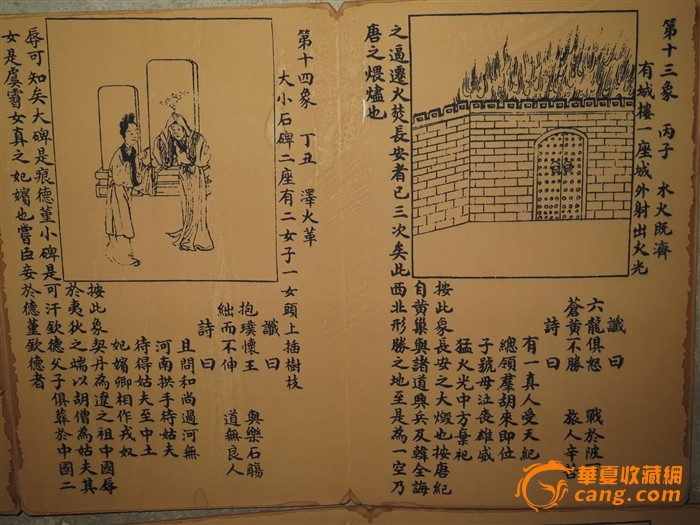 第十三象 丙子 水火既濟
有城樓一座城外射出火光
讖曰
六龍俱怒 戰於陂
蒼黃不勝 旅人辛苦
詩曰
有一真人受天紀
總領羣胡來即位
子號母泣喪雄威
猛火光中方棄祀
按此象長安之大燬也按唐紀
自黃巢與諸道興兵及韓全誨
之逼遷火焚長安者已三次矣此西北形勝之地至是為一空乃
唐之煨燼也
第十四象 丁丑 澤火革
大小石碑二座有二女子一女頭上插樹枝
讖曰
抱璞懷王 與樂石觴
絀而不伸 道無良人
詩曰
且問和尚過河無
河南拱手待姑夫
待得姑夫至中土
妃嬪卿相作戎奴
按此象契丹為遼之祖中國辱
於夷狄之端以胡僧為姑夫其
辱可知矣大碑是痕德堇小碑是可汗欽德父子俱葬於中國二
女是虞霫女真之妃嬪也嘗臣妾於德堇欽德者
華夏收藏網
cang.com